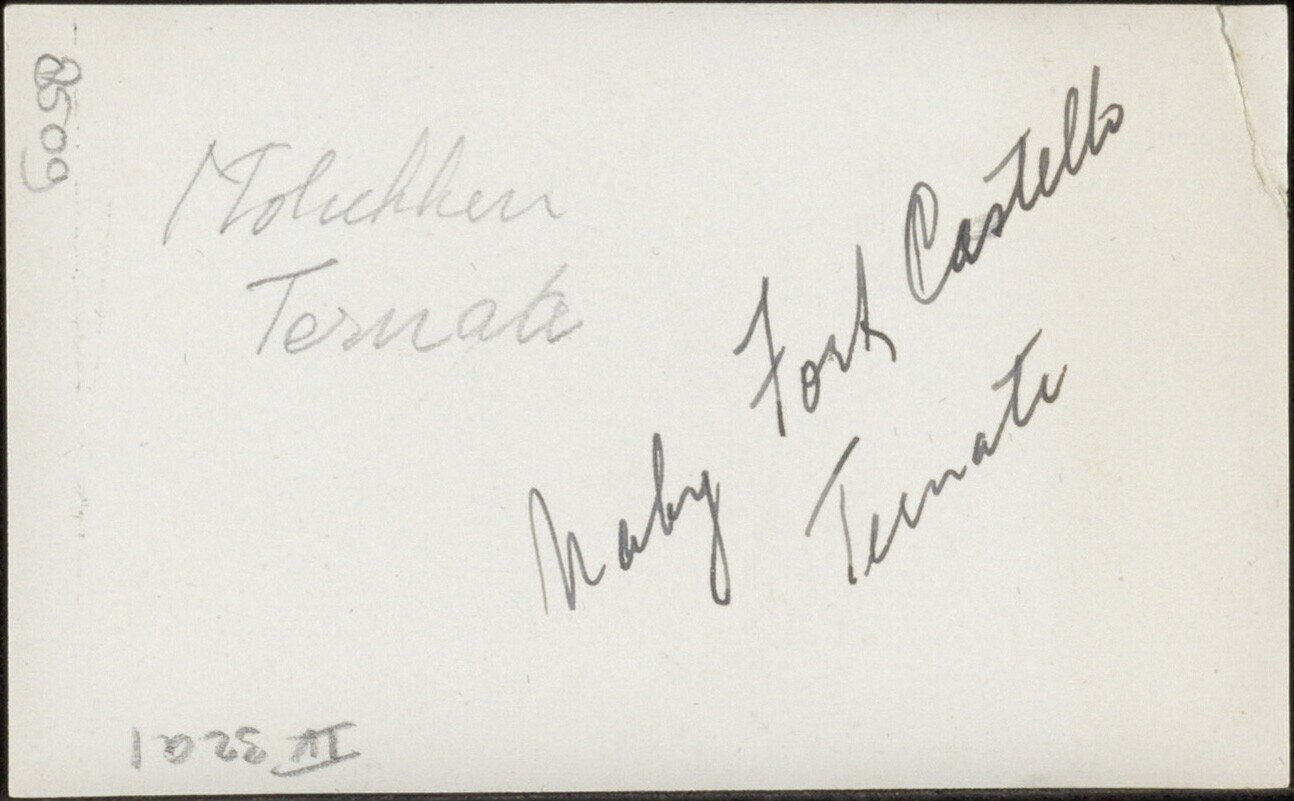 8509
Molukken
Ternate
Naby Fort Castello
Ternate